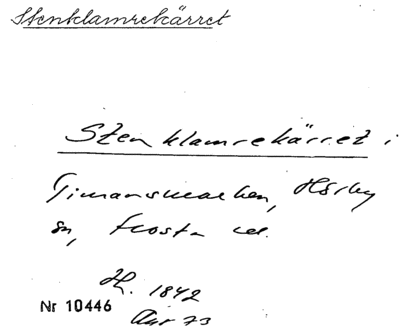 Stenklamrekärret
Stenklamrekärret i
Timansmarken, Hörby
sn, Frosta
H. 1842
Nr 10446
73